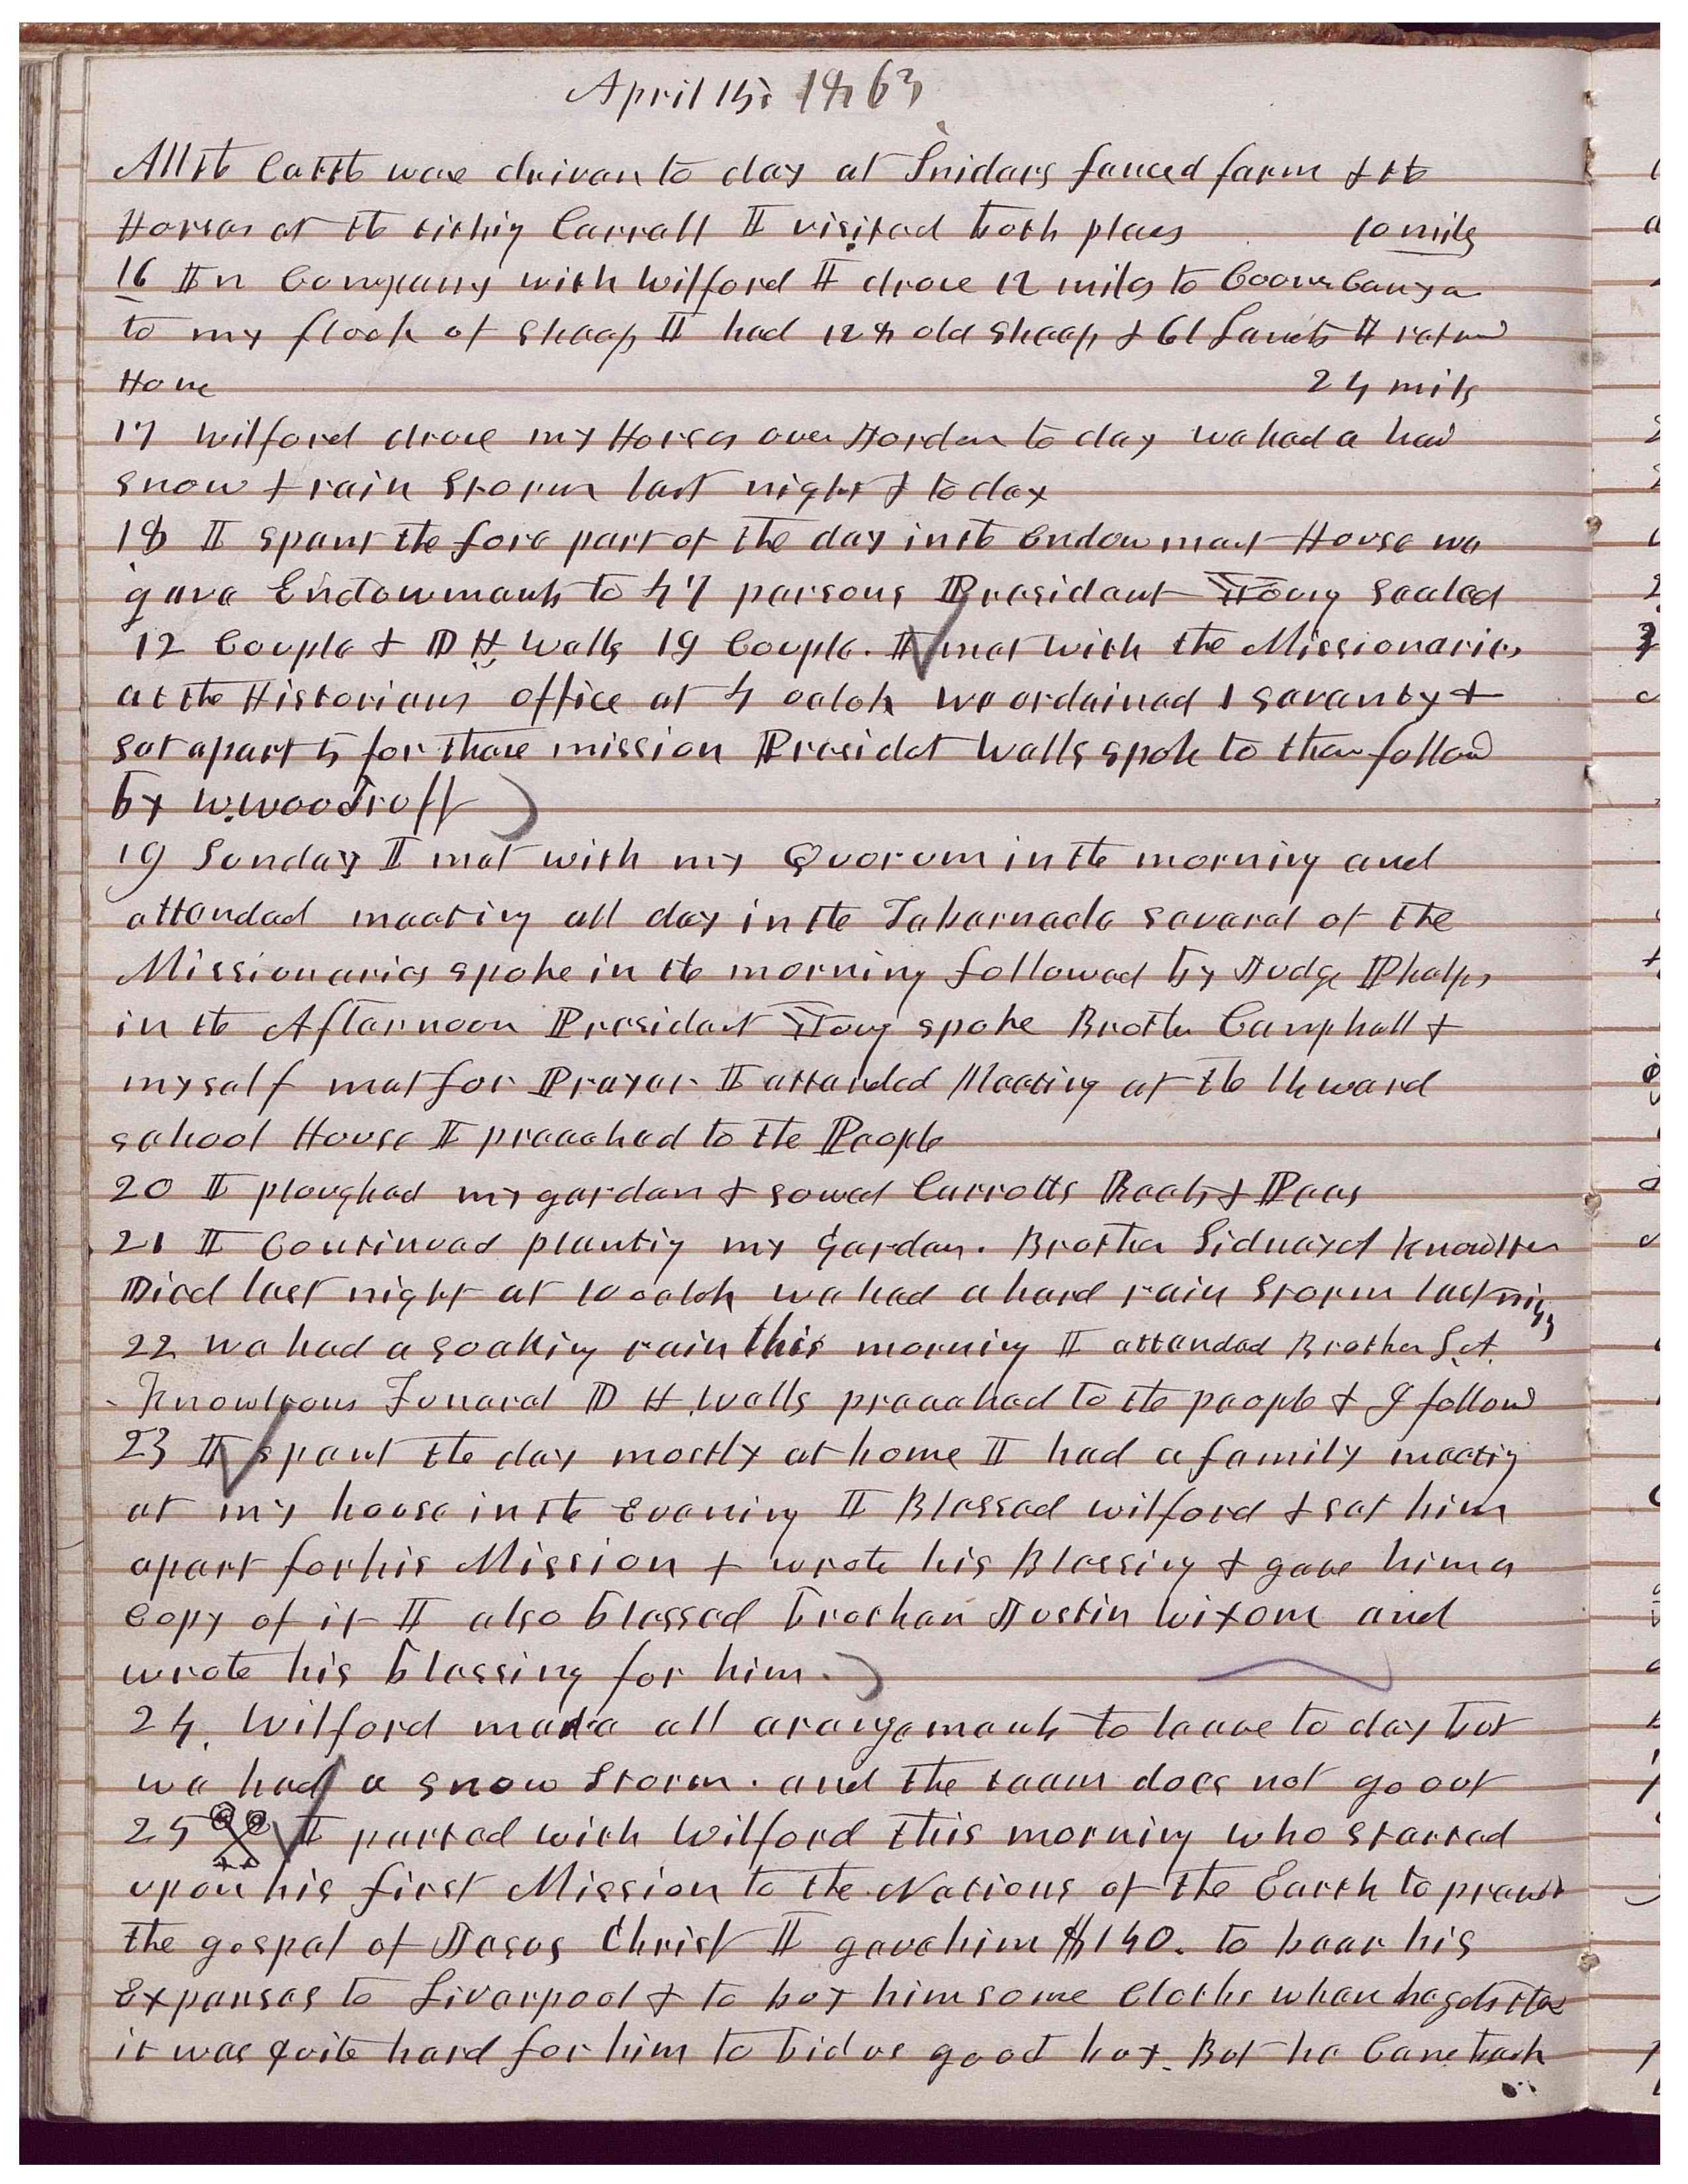 April 15, 1863
All the Cattle ware drivan to day at Snidars fenced farm & the
Horses at the tithing Carrall I visited both places 10 miles
16 In Company with Wilford I drove 12 miles to Coons Canyon
to my flock of Sheep I had 128 old Sheep & 61 Lambs I returned
Home 24 miles
17 Wilford drove my Horses over Jordan to day we had a hard
snow & rain Storm last night & to day
18 I spent the fore part of the day in the Endowment House we
gave Endowments to 47 persons President Young Sealed
12 Couple & D H Wells 19 Couple. I met with the Missionaries
at the Historians office at 4 oclok we ordained 1 seventy &
set apart 5 for there mission President Wells spoke to them followed
by W. Woodruff
19 Sunday I met with my Quorum in the morning and
attended meeting all day in the Tabernacle several of the
Missionaries spoke in the morning followed by Judge Phelps
in the Afternoon President Young spoke Brother Campbell &
myself met for Prayer I attended Meeting at the 14 ward
school House I preached to the People
20 I ploughed my garden & sowed Carrotts Beets & Peas
21 I Continued planting my Garden. Brother Sidney A Knowlton
Died last night at 10 oclok we had a hard rain Storm last night
22 we had a soaking rain this morning I attended Brother S. A.
Knowltons Funeral D H. Wells preached to the people & I followed
23 I spent the day mostly at home I had a family meeting
at my house in the Evening I Blessed Wilford & set him
apart for his Mission & wrote his Blessing & gave him a
Copy of it I also blessed brother Justin Wixom and
wrote his blessing for him.
24. Wilford made all arangements to leave to day but
we had a snow Storm. and the team does not go out
25 I parted with Wilford this morning who started
upon his first Mission to the Nations of the Earth to preach
the gospel of Jesus Christ I gave him $140. to bear his
Expenses to Liverpool & to buy him some Cloths when he gets there
it was quite hard for him to bid us good buy. But he Came back